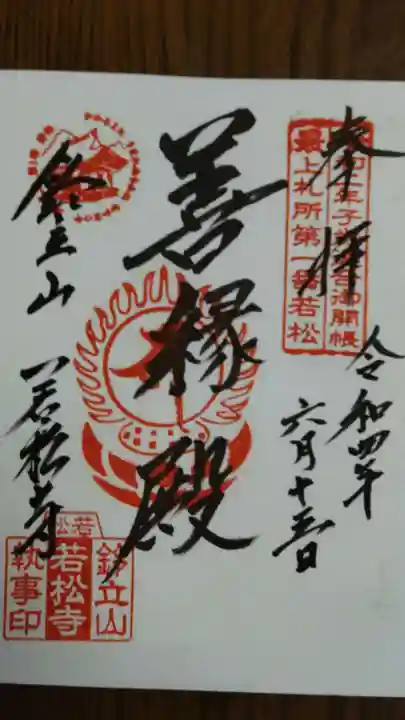 奉拝
令和四年
六月十五日
最上札所第一番若松
御開帳
善縁殿
鈴立山
若松寺
若松
鈴立山
若松寺
執事印